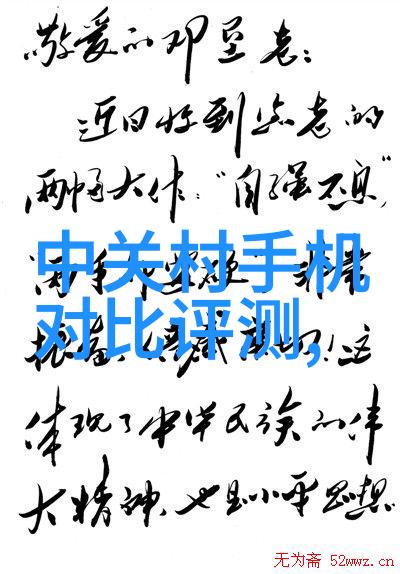 敬爱的邓星老:
近日收到您老的
两幅大作:"自强不息"
中关村手机
对比评测,
这
体现了中华民族的伟
大精神,也是小平思想
无为斋 52wwz.cn